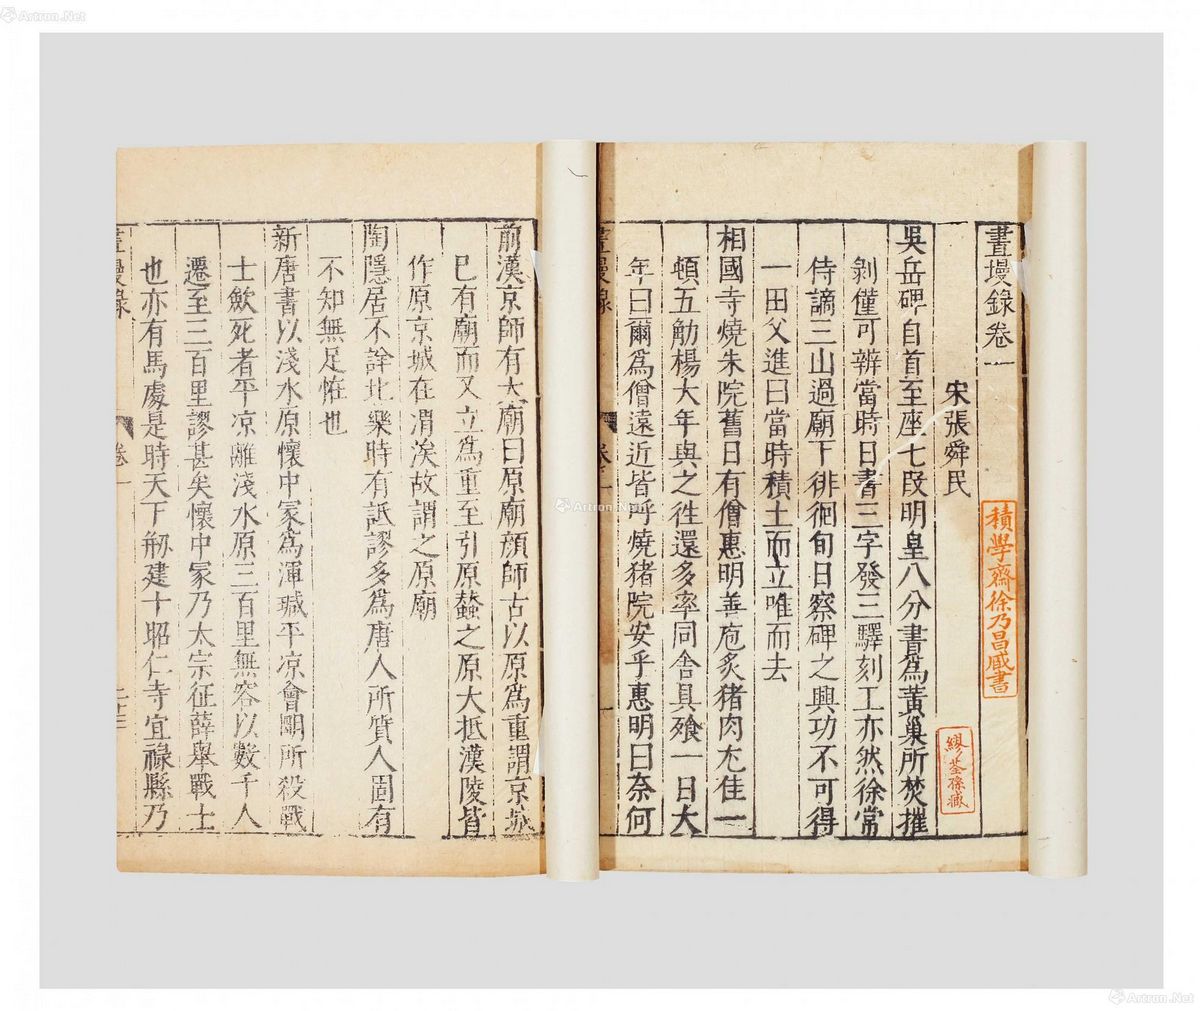 畫墁錄卷一
宋張舜民
積學齋徐乃昌藏書
繆荃孫藏
吳岳碑自首至座七段明皇八分書為黃巢所焚摧
剝僅可辨當時日書三字發三驛刻工亦然徐常
侍謫三山過廟下徘徊旬日察碑之興功不可得
一田父進曰當時積土而立唯而去
相國寺燒朱院舊日有僧惠明善庖炙猪肉尤佳一
頓五觔楊大年與之徃還多率同舍具飱一日大
年曰爾為僧遠近皆呼燒猪院安乎惠明曰奈何
畫墁錄
卷一
前漢京師有大廟曰原廟顏師古以原為重謂京城
已有廟而又立為重至引原蠶之原大抵漢陵皆
作原京城在渭涘故謂之原廟
陶隱居不詮北藥時有詆謬多為唐人所質人固有
不知無足恠也
新唐書以淺水原懷中冢為渾瑊平凉會盟所殺戰
士歛死者平凉離淺水原三百里無容以數千人
遷至三百里謬甚矣懷中冢乃太宗征薛舉戰士
也亦有馬處是時天下剏建十昭仁寺宜祿縣乃
畫墁錄
卷一
Artron.Net
Artron.Net
Artron.Net